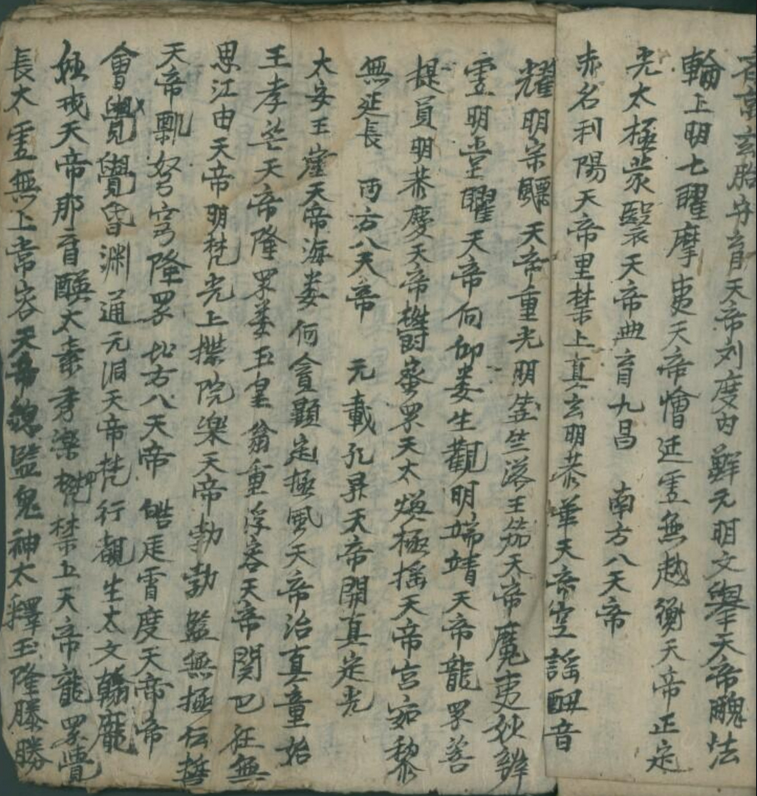 玄胎平育天帝刘度内鮮元明文舉天帝醜法
輪上明七曜摩夷天帝恬廷霐無越衡天帝正定
光太極蒙翳天帝典育九昌 南方八天帝
赤名利陽天帝里禁上真玄明恭華天帝空謡醜音
耀明宗飄天帝重光明竺落王笳天帝魔夷妙辨
霐明堂曜天帝何仰娄生觀明端靖天帝龍罗善
提員明恭慶天帝欝蜜罗天太煥極摇天帝宫宛黎
無延長 西方八天帝 元載孔昇天帝開真定光
太安王崖天帝海娄何奩顯定極風天帝治真童始
王孝芒天帝隆罗娄玉皇翁重浮容天帝関巴狂無
思江由天帝明梵光上揲院樂天帝勃勃監無極伝誓
天帝飄弩穹隆罗 北方八天帝 皓庭霄度天帝帝
會覺覺昏渊通元洞天帝梵行觀生太文翰寵
極戒天帝那育醜太素秀樂禁上天帝龍罗覺
長太霐無上常容天帝總監鬼神太釋玉隆滕勝